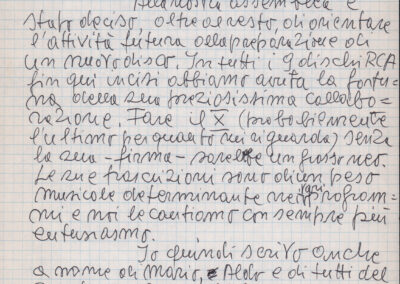 nostra assemblea è
stato deciso, oltre al resto, di orientare
l'attività futura alla preparazione di
un nuovo disco. In tutti i 9 dischi RCA
fin qui incisi abbiamo avuta la fortu=
na della sua preziosissima collabo=
razione. Fare il X (probabilmente
l'ultimo per quanto mi riguarda) senza
la sua - firma - sarebbe un grosso neo.
Le sue trascrizioni sono di un peso
musicale determinante nei vari program=
mi e noi le cantiamo con sempre più
entusiasmo.
Io quindi scrivo anche
a nome di Mario, Aldo e di tutti del